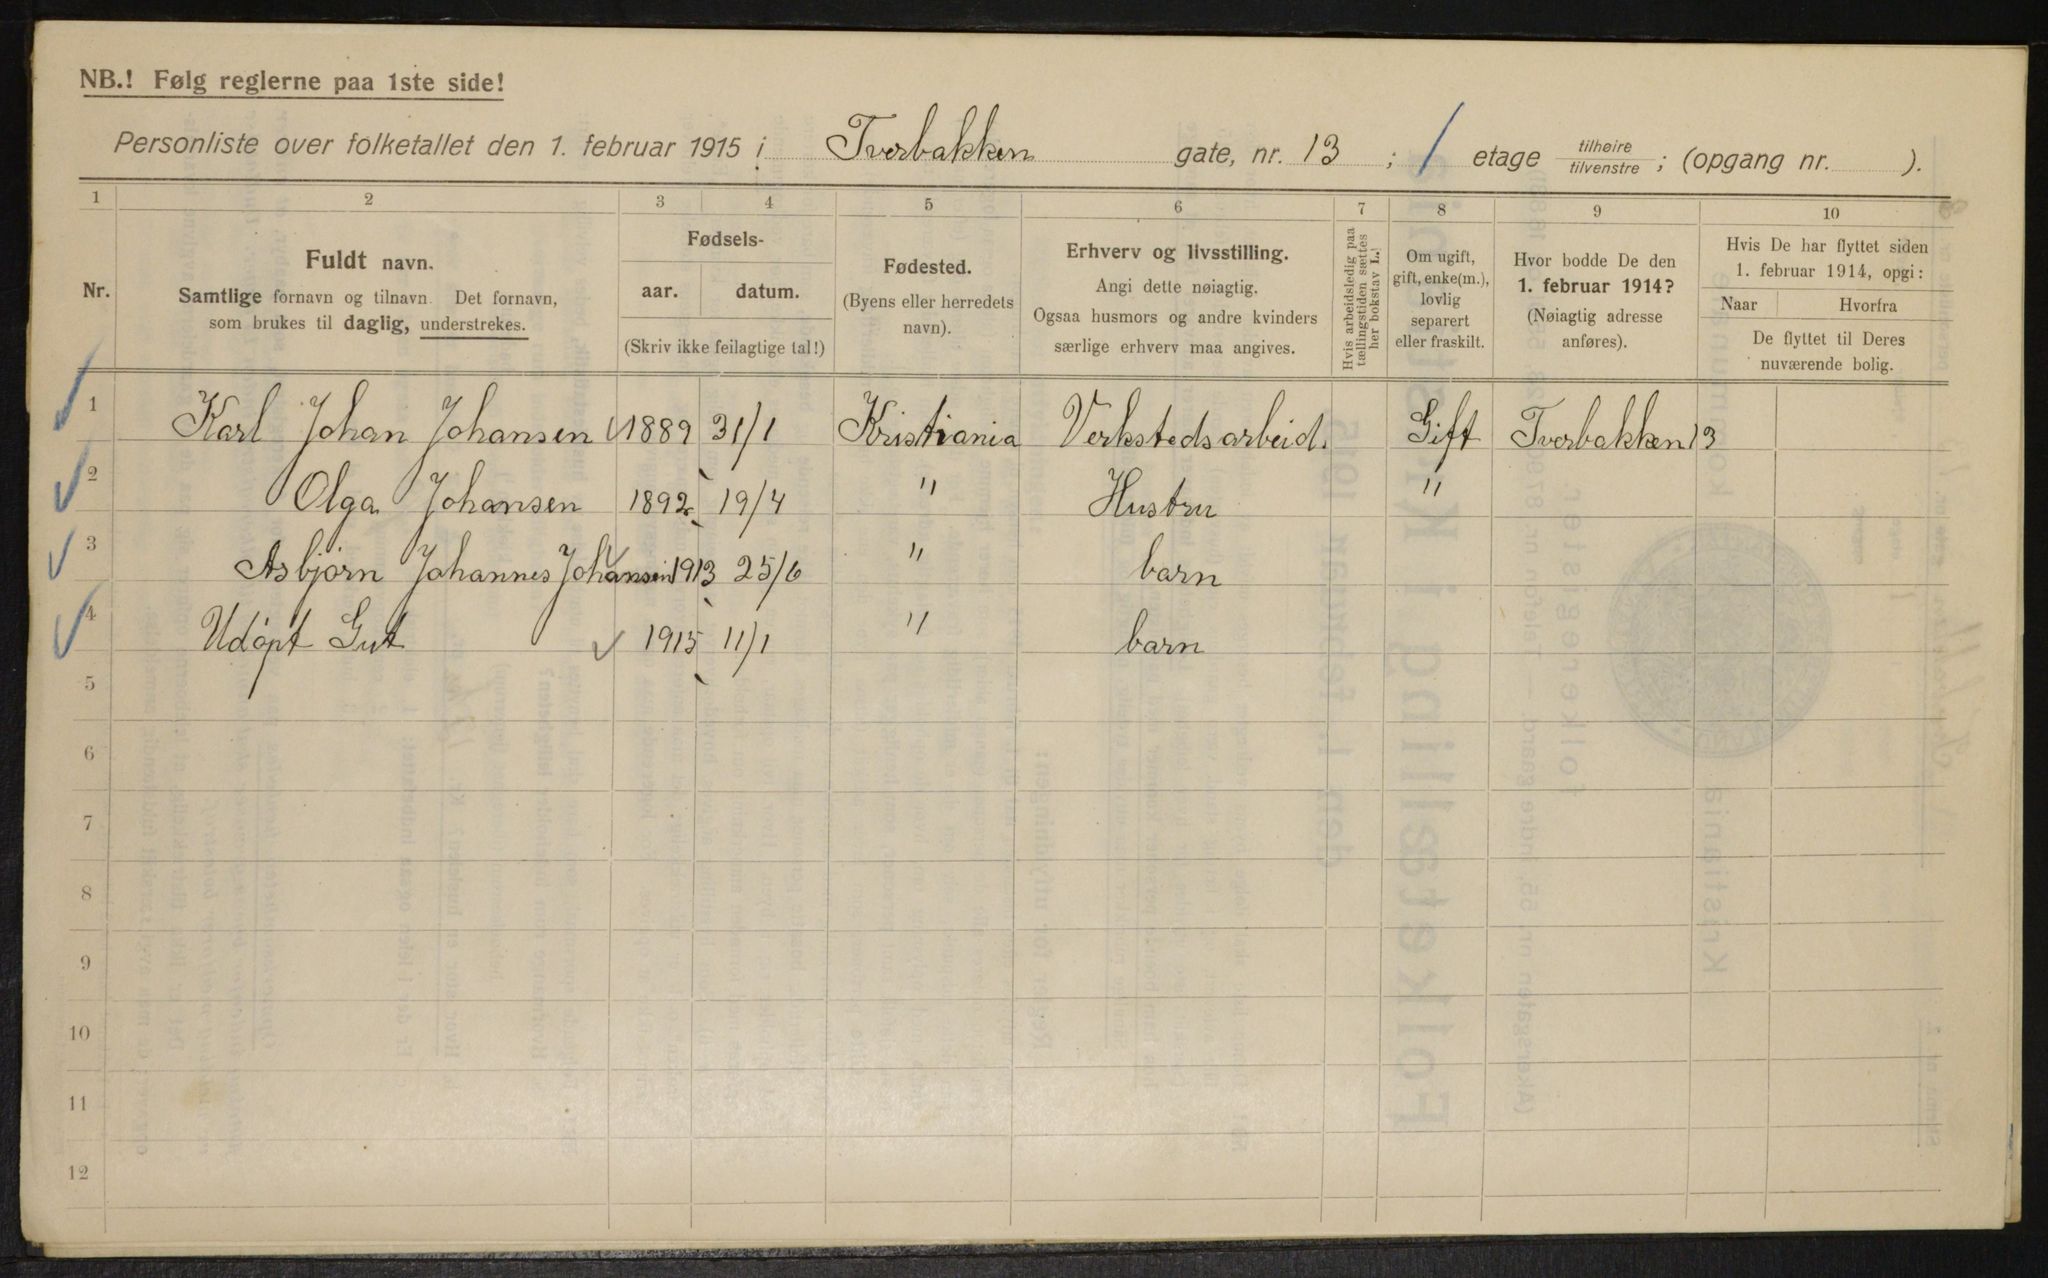 NB.! Følg reglerne paa 1ste side!
Personliste over folketallet den 1. februar 1915 i Tverbakken gate, nr. 13 ; 1 etage tilhøire / tilvenstre ; (opgang nr. ).
1 2 3 4 5 6 7 8 9 10
Nr.
Fuldt navn.
Samtlige fornavn og tilnavn. Det fornavn,
som brukes til daglig, understrekes.
Fødsels-
aar. datum.
(Skriv ikke feilagtige tal!)
Fødested.
(Byens eller herredets
navn).
Erhverv og livsstilling.
Angi dette nøiagtig.
Ogsaa husmors og andre kvinders
særlige erhverv maa angives.
Hvis arbeidsledig paa
tællingstiden sættes
her bokstav L.!
Om ugift,
gift, enke(m.),
lovlig
separert
eller fraskilt.
Hvor bodde De den
1. februar 1914?
(Nøiagtig adresse
anføres).
Hvis De har flyttet siden
1. februar 1914, opgi:
Naar Hvorfra
De flyttet til Deres
nuværende bolig.
1 Karl Johan Johansen 1889 31/1 Kristiania Verkstedsarbeid. Gift Tverbakken 13
2 Olga Johansen 1892 19/4 " Hustru "
3 Asbjørn Johannes Johansen 1913 25/6 " barn
4 Udøpt Gut 1915 11/1 " barn
5
6
7
8
9
10
11
12